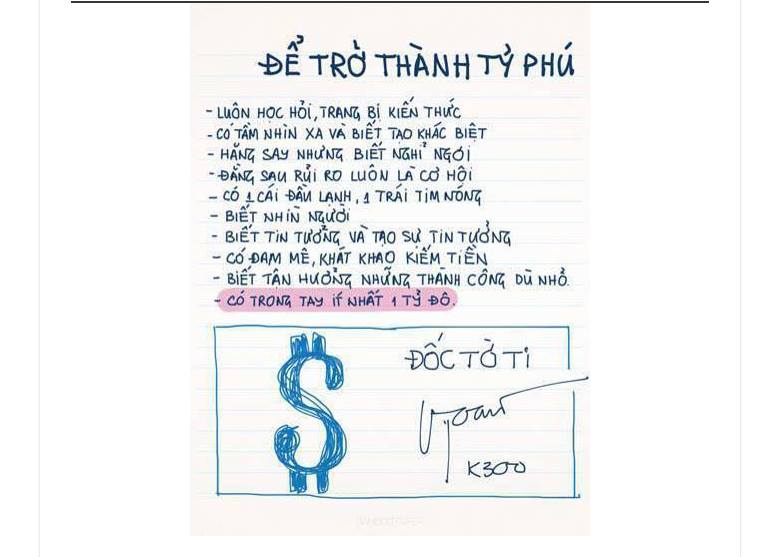 ĐỂ TRỞ THÀNH TỶ PHÚ
- LUÔN HỌC HỎI, TRANG BỊ KIẾN THỨC
- CÓ TẦM NHÌN XA VÀ BIẾT TẠO KHÁC BIỆT
- HĂNG SAY NHƯNG BIẾT NGHỈ NGƠI
- ĐẰNG SAU RỦI RO LUÔN LÀ CƠ HỘI
- CÓ 1 CÁI ĐẦU LẠNH, 1 TRÁI TIM NÓNG
- BIẾT NHÌN NGƯỜI
- BIẾT TIN TƯỞNG VÀ TẠO SỰ TIN TƯỞNG
- CÓ ĐAM MÊ, KHÁT KHAO KIẾM TIỀN
- BIẾT TẬN HƯỞNG NHỮNG THÀNH CÔNG DÙ NHỎ.
- CÓ TRONG TAY ÍT NHẤT 1 TỶ ĐÔ.
$
ĐỐC TỜ TI
K300